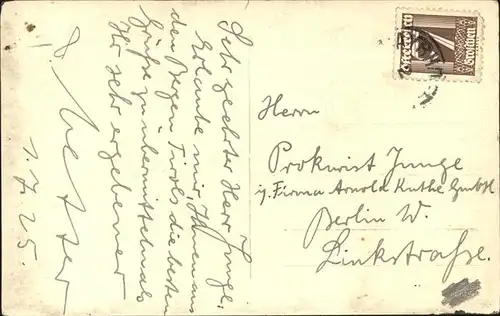 Sehr geehrter Herr Junge.
Erlaube mir, Ihnen aus
den Bergen Tirols die besten
Grüße zu übermitteln als
Ihr sehr ergebener
1.7.25.
Herrn
Prokurist Junge
i/ Firma Arnold Kuthe GmbH.
Berlin W.
Linkstraße.
Groschen